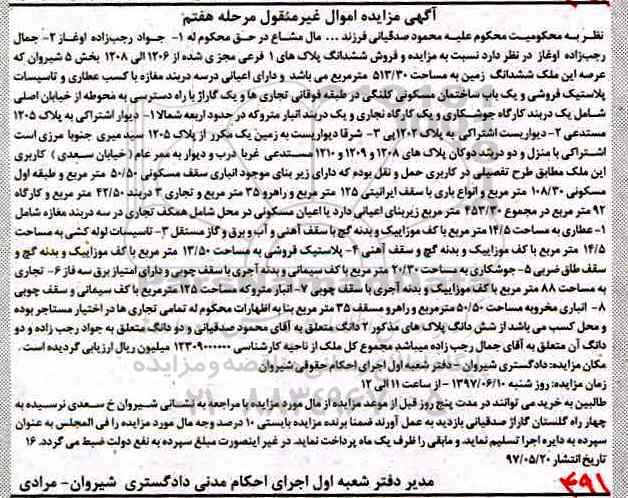 آگهی مزایده اموال غیرمنقول مرحله هفتم
نظر به محکومیت محکوم علیه محمود صدقیانی فرزند ... مال مشاع در حق محکوم له ۱- جواد رجب‌زاده اوغاز ۲- جمال
رجب‌زاده اوغاز در نظر دارد نسبت به مزایده و فروش ششدانگ پلاک های ۱ فرعی مجزی شده از ۱۲۰۶ الی ۱۲۰۸ بخش ۵ شیروان که
عرصه این ملک ششدانگ زمین به مساحت ۵۱۳/۳۰ مترمربع می باشد و دارای اعیانی درسه دربند مغازه با کسب عطاری و تاسیسات
پلاستیک فروشی و یک باب ساختمان مسکونی کلنگی در طبقه فوقانی تجاری ها و یک گاراژ با راه دسترسی به محوطه از خیابان اصلی
شامل یک دربند کارگاه جوشکاری و یک کارگاه نجاری و یک دربند انبار متروکه در حدود اربعه شمالا ۱- دیوار اشتراکی به پلاک ۱۲۰۵
مستدعی ۲- دیواریست اشتراکی به پلاک ۱۲۰۲پی ۳- شرقا دیواریست به زمین یک مکرر از پلاک ۱۲۰۵ سید میری جنوبا مرزی است
اشتراکی با منزل و دو دربند دوکان پلاک های ۱۲۰۸ و ۱۲۰۹ و ۱۲۱۰ مستدعی غربا درب و دیوار به ممر عام (خیابان سعدی) کاربری
این ملک مطابق طرح تفصیلی در کاربری حمل و نقل بوده که دارای زیر بنای موجود انباری سقف مسکونی ۵۰/۵۰ متر مربع و طبقه اول
مسکونی ۱۰۸/۳۰ متر مربع و انواع باری با سقف ایرانیتی ۱۲۵ متر مربع و راهرو ۳۵ متر مربع و تجاری ۳ دربند ۴۲/۵۰ متر مربع و کارگاه
۹۲ متر مربع در مجموع ۴۵۳/۳۰ متر مربع زیربنای اعیانی دارد یا اعیان مسکونی در محل شامل همکف تجاری در سه دربند مغازه شامل
۱- عطاری به مساحت ۱۴/۵ متر مربع با کف موزاییک و بدنه گچ با سقف آهنی و آب و برق و گاز مستقل ۳- تاسیسات لوله کشی به مساحت
۱۴/۵ متر مربع با کف موزاییک و بدنه گچ و سقف آهنی ۴- پلاستیک فروشی به مساحت ۱۳/۵۰ متر مربع با کف موزاییک و بدنه گچ و
سقف طاق ضربی ۵- جوشکاری به مساحت ۲۰/۳۰ متر مربع با کف سیمانی و بدنه آجری با سقف چوبی و دارای امتیاز برق سه فاز ۶- تجاری
به مساحت ۸۸ متر مربع با کف موزاییک و بدنه آجری با سقف چوبی ۷- انبار متروکه مساحت ۱۲۵ مترمربع با کف سیمانی و سقف چوبی
۸- انباری مخروبه مساحت ۵۰/۵۰ مترمربع و راهرو مسقف ۳۵ متر مربع بنا به اظهارات محکوم له تمامی تجاری ها در اختیار مستاجر بوده
و محل کسب می باشد از شش دانگ پلاک های مذکور ۲ دانگ متعلق به آقای محمود صدقیانی و دو دانگ متعلق به جواد رجب زاده و دو
دانگ آن متعلق به آقای جمال رجب زاده میباشد مجموع کل ملک از ناحیه کارشناسی ۱۲۳۰۹۰۰۰۰۰۰ میلیون ریال ارزیابی گردیده است.
مکان مزایده: دادگستری شیروان - دفتر شعبه اول اجرای احکام حقوقی شیروان
زمان مزایده: روز شنبه ۱۳۹۷/۰۶/۱۰ - از ساعت ۱۱ الی ۱۲
طالبین به خرید می توانند در مدت پنج روز قبل از موعد مزایده از مال مورد مزایده با مراجعه به نشانی شیروان خ سعدی نرسیده به
چهار راه گلستان گاراژ صدقیانی بازدید به عمل آورند ضمنا برنده مزایده بایستی ۱۰ درصد وجه مال مورد مزایده را فی المجلس به عنوان
سپرده به دایره اجرا تسلیم نماید و مابقی را ظرف یک ماه پرداخت نماید. در غیر اینصورت مبلغ سپرده به نفع دولت ضبط می گردد. ۱۶
تاریخ انتشار ۹۷/۰۵/۲۰
مدیر دفتر شعبه اول اجرای احکام مدنی دادگستری شیروان- مرادی
۴۹۱